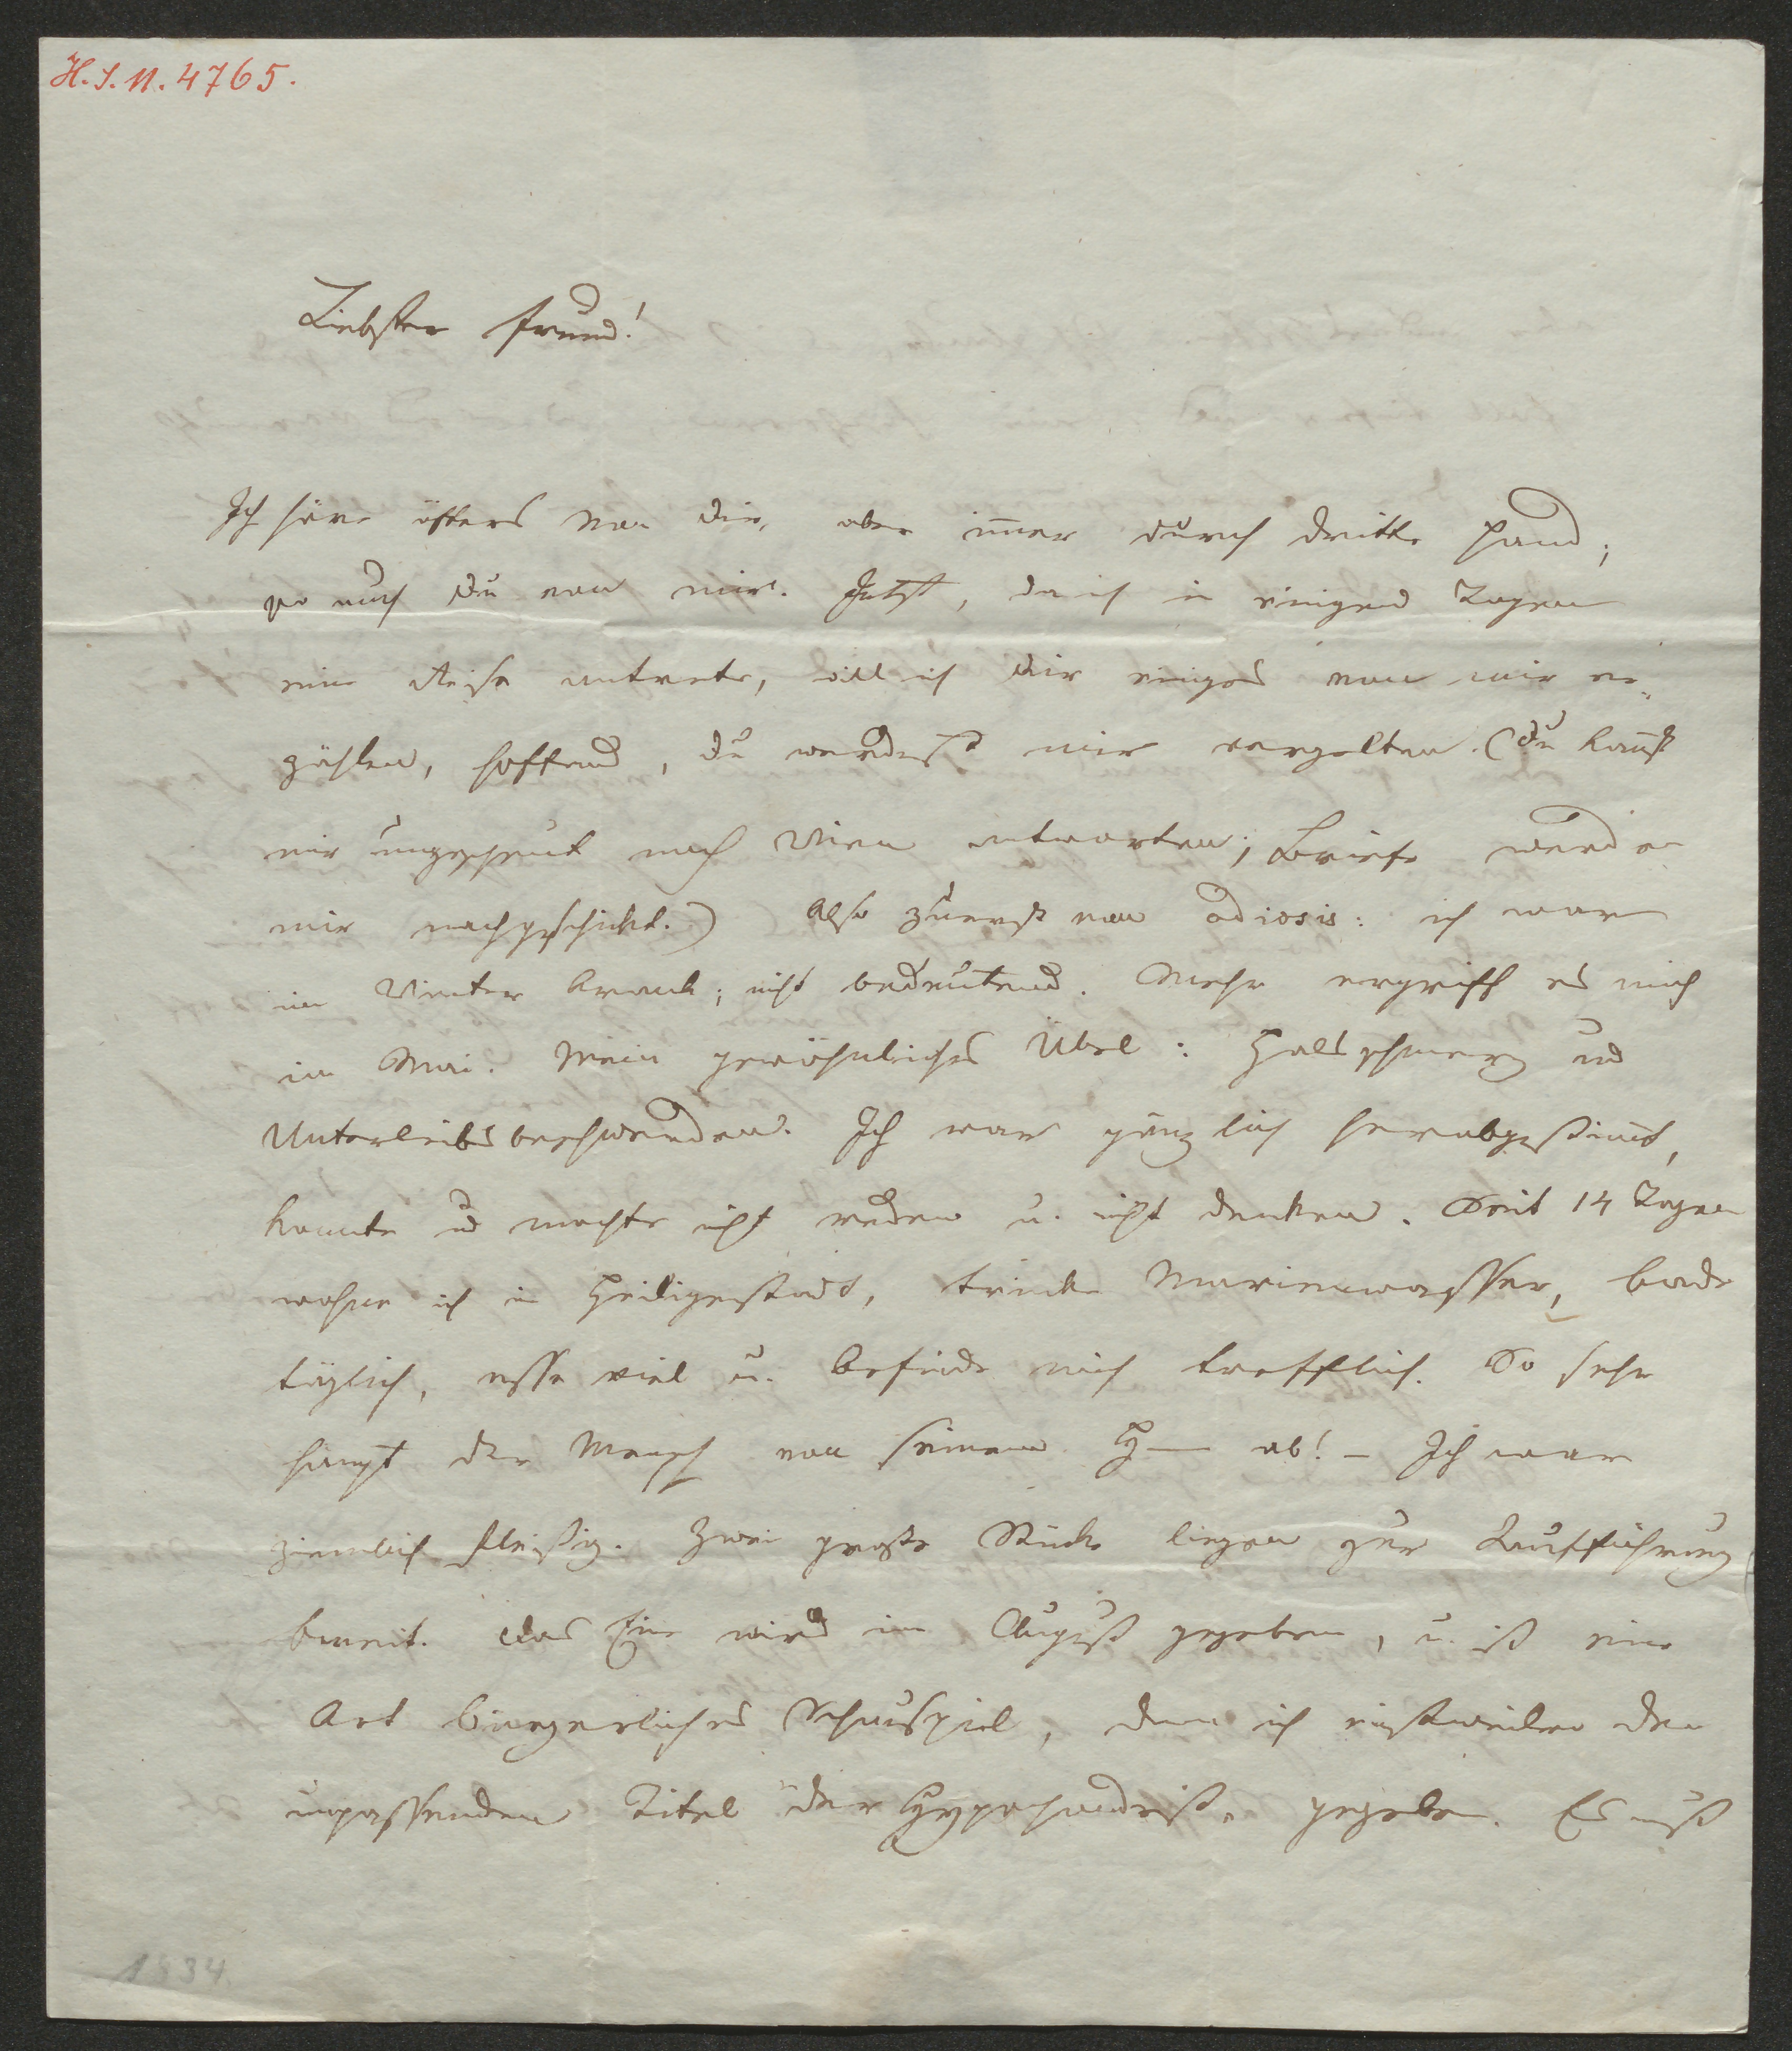 H. I. N. 4765.
Liebster Freund!
Ich höre öfters von dir, aber im̄er durch dritte Hand;
so auch du von mir. Jetzt, da ich in einigen Tagen
eine Reise antrete, will ich dir einiges von mir er„
zählen, hoffend, du werdest mir vergelten. (Du kan̄st
mir ungescheut nach Wien antworten; Briefe werden
mir nachgeschickt.) Also zuerst von odiosis: ich war
im Winter krank; nicht bedeutend. Mehr ergriff es mich
im Mai. Mein gewöhnliches Übel: Halsschmerz und
Unterleibsbeschwerden. Ich war gänzlich herabgestim̄t,
konnte und mochte nicht reden u. nicht denken. Seit 14 Tagen
wohne ich in Heiligenstadt, trinke Marienwasser, bade
täglich, esse viel u. befinde mich trefflich. So sehr
hängt der Mensch von seinem H— ab! – Ich war
ziemlich fleißig. Zwei große Stücke liegen zur Aufführung
bereit. Das Eine wird im August gegeben, u. ist eine
Art bürgerliches Schauspiel, dem ich einstweilen den
unpassenden Titel „der Hypochondrist“ gegeben. Es muß
1834.